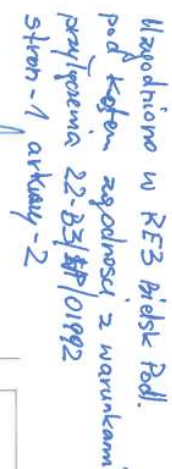 Uzgodniono w RE3 Bielsk Podl.
pod kątem zgodności z warunkami
przyłączenia 22-B3/WP/01992
stron-1 arkuszy-2